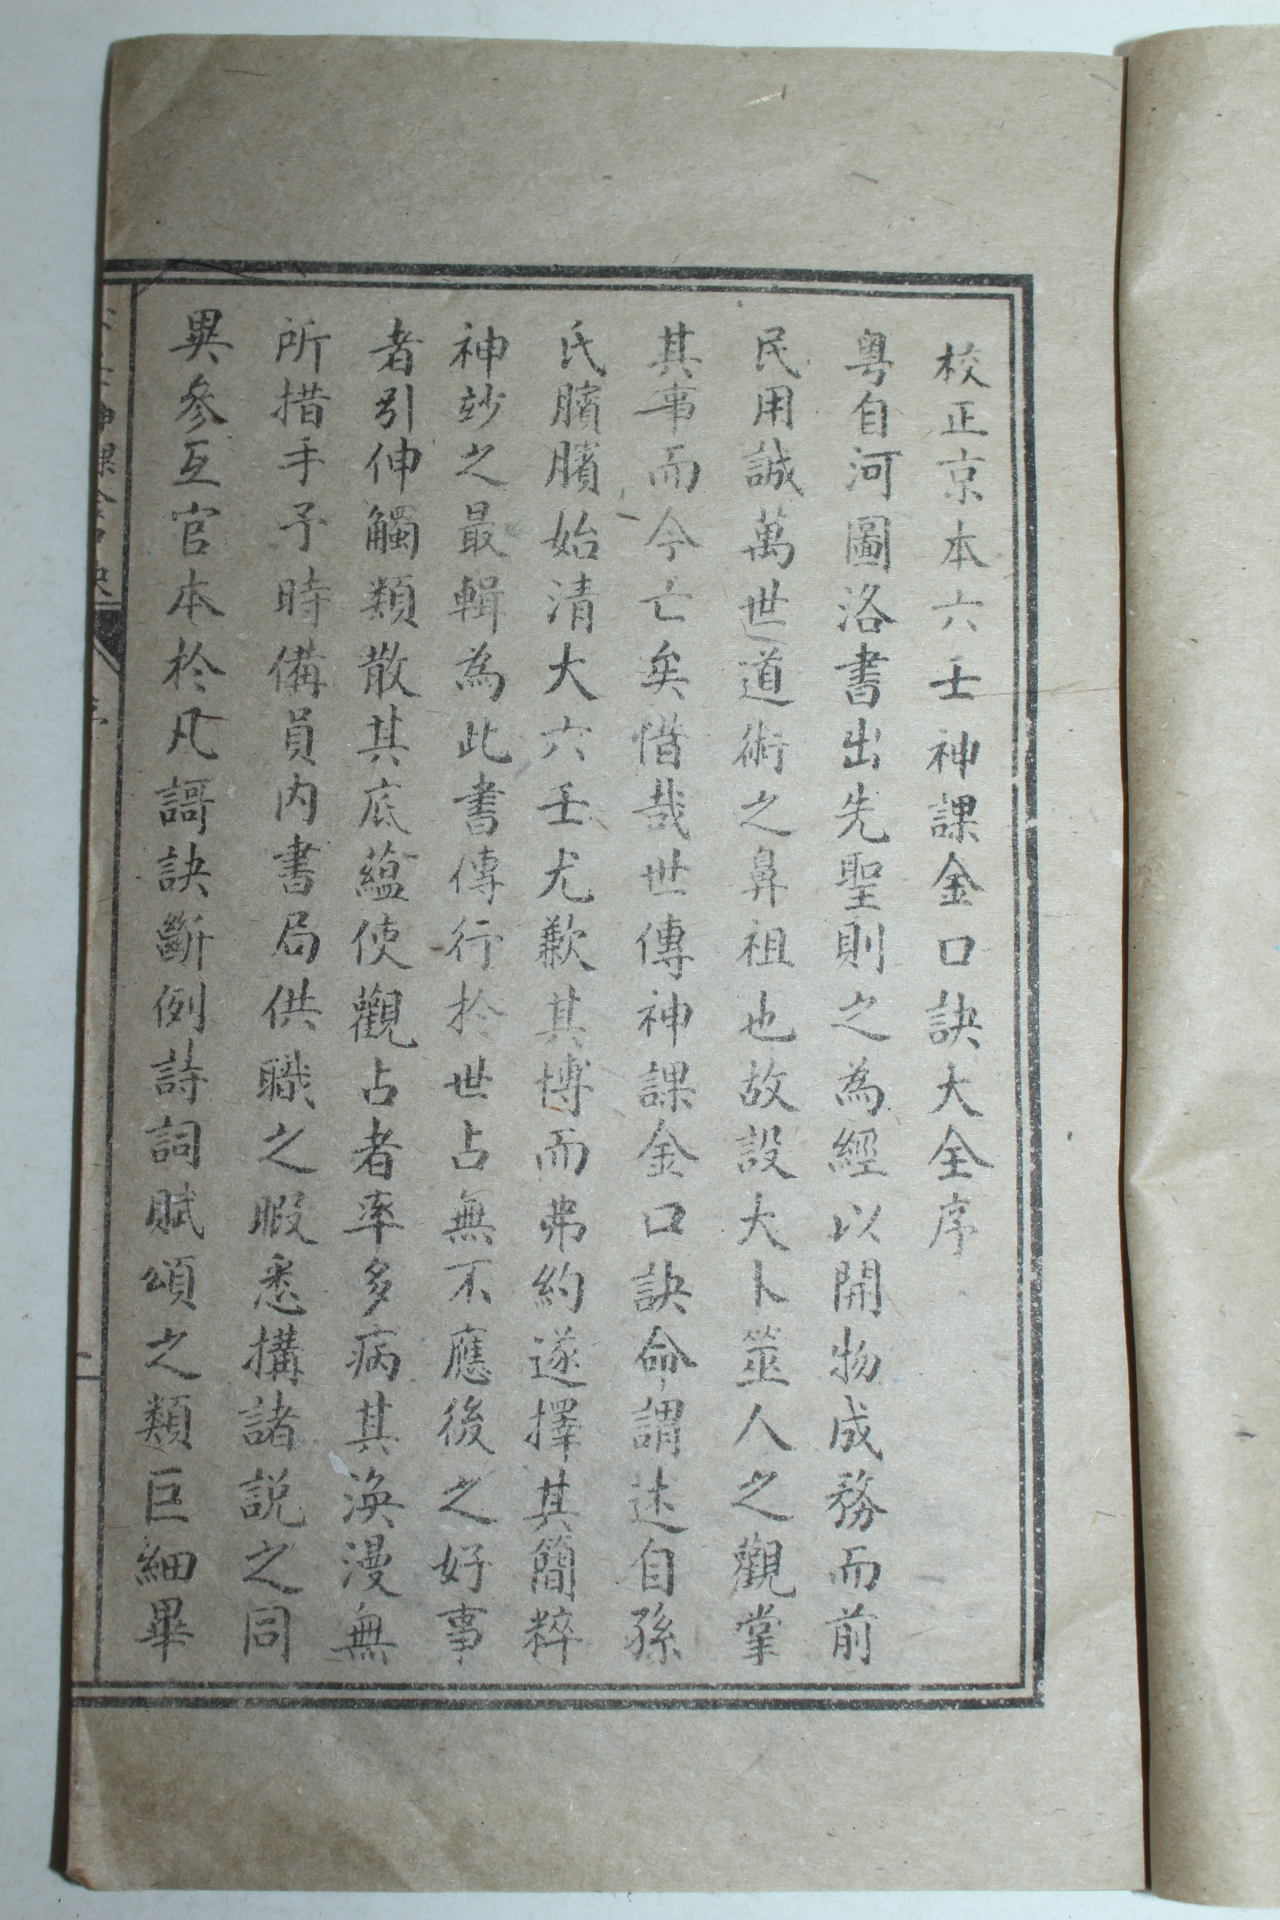 校正京本六壬神課金口訣大全序
粤自河圖洛書出先聖則之為經以開物成務而前
民用誠萬世道術之鼻祖也故設大卜筮人之觀掌
其事而今亡矣惜哉世傳神課金口訣命謂述自孫
氏臏臏始清大六壬尤歉其博而弗約遂擇其簡粹
神玅之最輯為此書傳行於世占無不應後之好事
者引伸觸類散其底蘊使觀占者率多病其渙漫無
所措手予時備員内書局供職之暇悉搆諸說之同
異參互官本於凡謌訣斷例詩詞賦頌之類巨細畢
神課金口訣
序
一